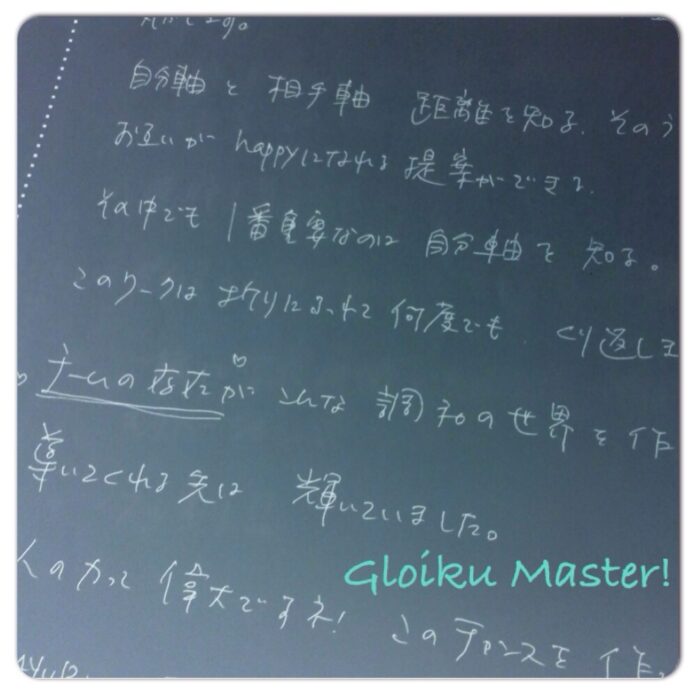 自分軸と 相手軸 距離を知る。そのう
お互いが happyになれる 提案ができる。
その中でも 1番重要なのは 自分軸を 知る。
このワークは おりにふれて 何度でも、くり返しま
の存在が こんな 調和の世界を 作
導いてくれる先は 輝いていました。
人の力って 偉大ですネ! このチャンスを 作
Gloiku Master!